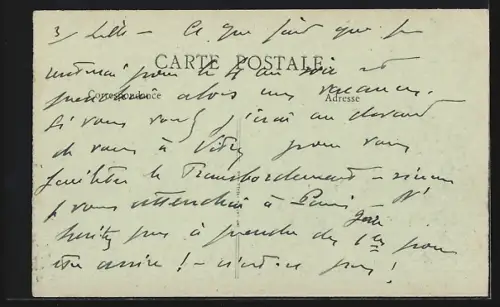 3/ Lille - Ce qui fait que je
CARTE POSTALE
pour le 4 au soir et
Correspondance Adresse
prendrai alors mes vacances.
Si vous voulez j'irai au devant
de vous à Vitry pour vous
faciliter le Transbordement - sinon
je vous attendrai à Paris - N'
hésitez pas à prendre des 1ères pour
être assise ! - n'est-ce pas !